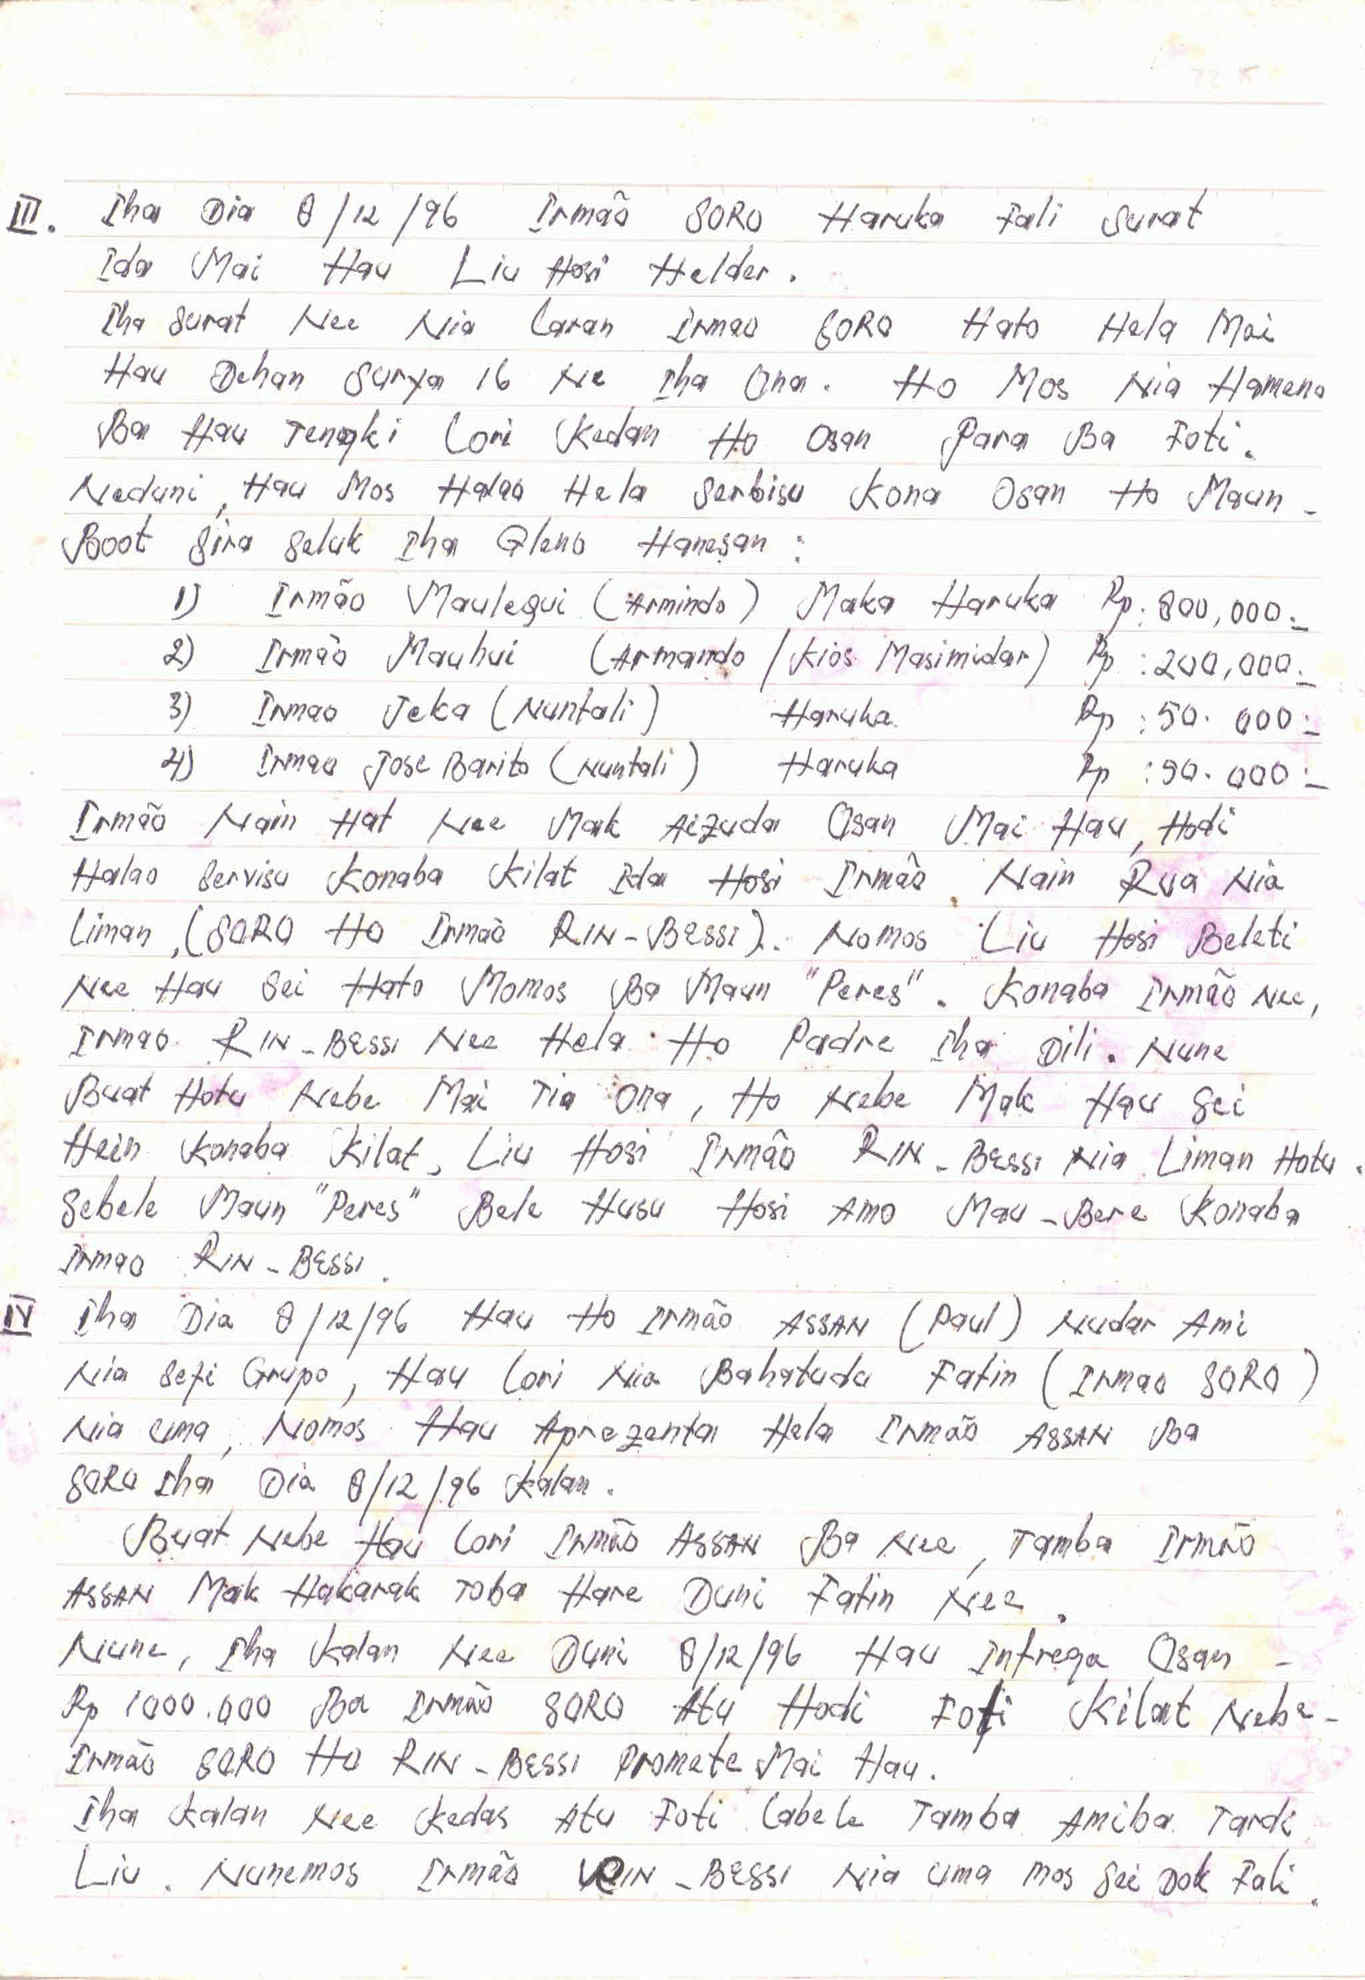 III. Iha Dia 8/12/96 Irmão SORO Haruka Fali Surat
Ida Mai Hau Liu Hosi Helder.
Iha Surat Nee Nia Laran Irmao SORO Hato Hela Mai
Hau Dehan Surya 16 Ne Iha Ona. Ho Mos Nia Hameno
Ba Hau Tengki Lori Kedan Ho Osan Para Ba Foti.
Neduni, Hau Mos Halao Hela Serbisu Kona Osan Ho Maun -
Boot Sira Seluk Iha Gleno Hanesan :
1) Irmão Maulequi (Armindo) Maka Haruka Rp. 800,000:-
2) Irmão Mauhui (Armando / Kios Masimidar) Rp : 200,000:-
3) Irmao Jeka (Nuntali) Haruka Rp : 50.000:-
4) Irmao Jose Barito (Nuntali) Haruka Rp : 90.000:-
Irmão Nain Hat Nee Mak Aizuda Osan Mai Hau, Hodi
Halao Servisu Konaba Kilat Ida Hosi Irmão Nain Rua Nia
Liman, (SORO Ho Irmão RIN-BESSI). Nomos Liu Hosi Beleti
Nee Hau Sei Hato Momos Ba Maun "Peres". Konaba Irmão Nee,
Irmao RIN-BESSI Nee Hela Ho Padre Iha Dili. Nune
Buat Hotu Nebe Mai Tia Ona, Ho Nebe Mak Hau Sei
Hein Konaba Kilat, Liu Hosi Irmão RIN-BESSI Nia Liman Hotu.
Sebele Maun "Peres" Bele Husu Hosi Amo Mau-Bere Konaba
Irmao RIN-BESSI.
IV Iha Dia 8/12/96 Hau Ho Irmão ASSAN (Paul) Nudar Ami
Nia Sefi Grupo, Hau Lori Nia Bahatudu Fatin (Irmao SORO)
Nia Uma, Nomos Hau Aprezenta Hela Irmão ASSAN Ba
SORO Iha Dia 8/12/96 Kalan.
Buat Nebe Hau Lori Irmão ASSAN Ba Nee, Tamba Irmão
ASSAN Mak Hakarak Toba Hare Duni Fatin Nee.
Nune, Iha Kalan Nee Duni 8/12/96 Hau Intrega Osan -
Rp 1000.000 Ba Irmão SORO Atu Hodi Foti Kilat Nebe -
Irmão SORO Ho RIN-BESSI Promete Mai Hau.
Iha Kalan Nee Kedas Atu Foti Labele Tamba Amiba Tardi
Liu. Nunemos Irmão RIN-BESSI Nia Uma Mos Sei Dok Fali.